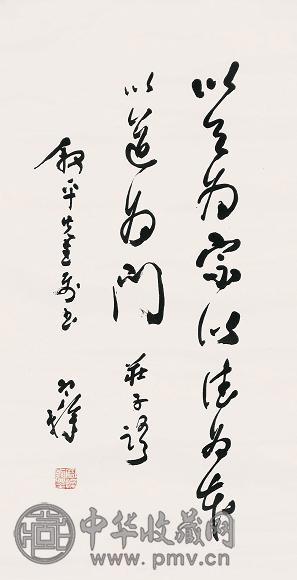 以天为宗以德为本
以道为門 莊子语
叔平先生属书
中华收藏网
www.pmv.cn